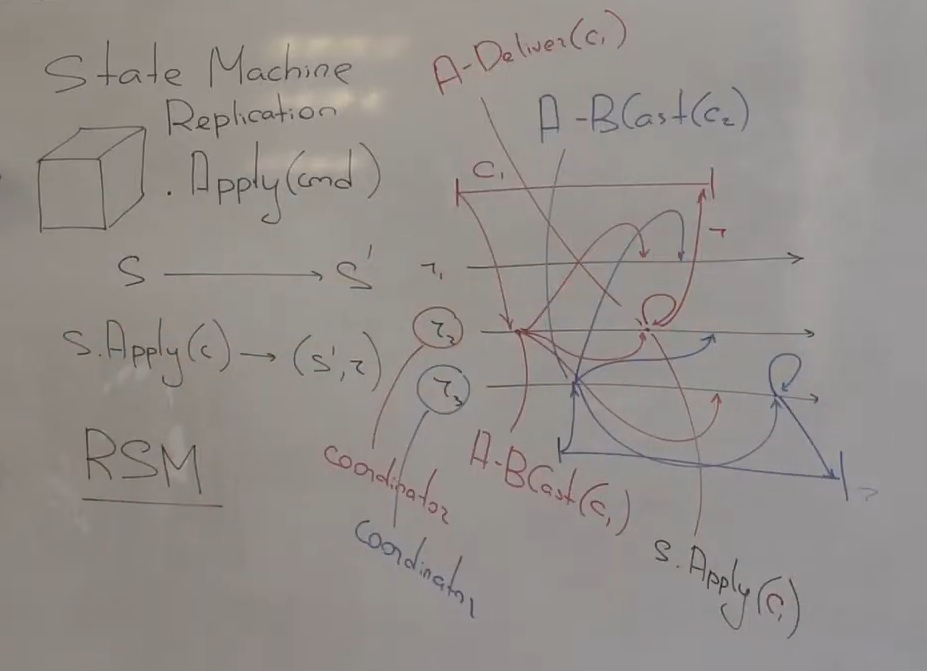 State Machine
Replication
. Apply(cmd)
S → S'
S.Apply(c) → (S', r)
RSM
A-Deliver(c₁)
A-BCast(c₂)
C₁
r
r₁
r₂
r₃
coordinator
coordinator
A-BCast(c₁)
S.Apply(c₁)